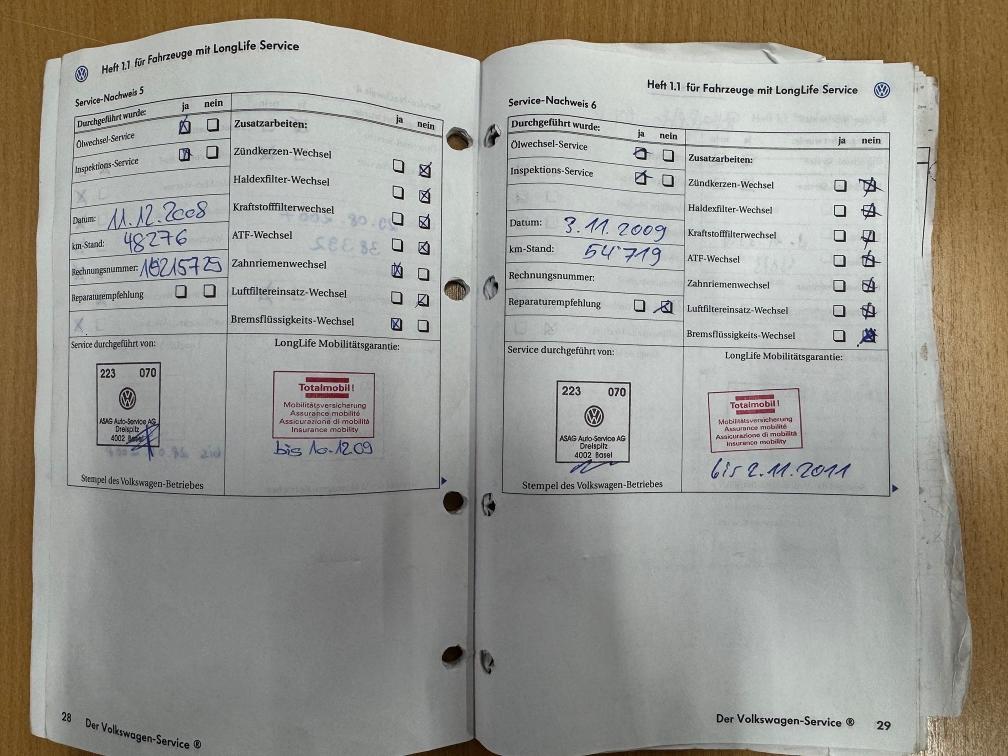 Heft 1.1 für Fahrzeuge mit LongLife Service
Service-Nachweis 5
Durchgeführt wurde: ja nein
Ölwechsel-Service
Inspektions-Service
Datum: 11.12.2008
km-Stand: 48276
Rechnungsnummer: 10215725
Reparaturempfehlung
ja nein
Zusatzarbeiten:
Zündkerzen-Wechsel
Haldexfilter-Wechsel
Kraftstofffilterwechsel
ATF-Wechsel
Zahnriemenwechsel
Luftfiltereinsatz-Wechsel
Bremsflüssigkeits-Wechsel
Service durchgeführt von:
223 070
ASAG Auto-Service AG
Dreispitz
4002 Basel
Stempel des Volkswagen-Betriebes
LongLife Mobilitätsgarantie:
Totalmobil!
Mobilitätsversicherung
Assurance mobilité
Assicurazione di mobilità
Insurance mobility
bis 10.1209
28 Der Volkswagen-Service ®
Heft 1.1 für Fahrzeuge mit LongLife Service
Service-Nachweis 6
Durchgeführt wurde: ja nein
Ölwechsel-Service
Inspektions-Service
Datum: 3.11.2009
km-Stand: 54'719
Rechnungsnummer:
Reparaturempfehlung
ja nein
Zusatzarbeiten:
Zündkerzen-Wechsel
Haldexfilter-Wechsel
Kraftstofffilterwechsel
ATF-Wechsel
Zahnriemenwechsel
Luftfiltereinsatz-Wechsel
Bremsflüssigkeits-Wechsel
Service durchgeführt von:
223 070
ASAG Auto-Service AG
Dreispitz
4002 Basel
Stempel des Volkswagen-Betriebes
LongLife Mobilitätsgarantie:
Totalmobil!
Mobilitätsversicherung
Assurance mobilité
Assicurazione di mobilità
Insurance mobility
bis 2.11.2011
Der Volkswagen-Service ® 29